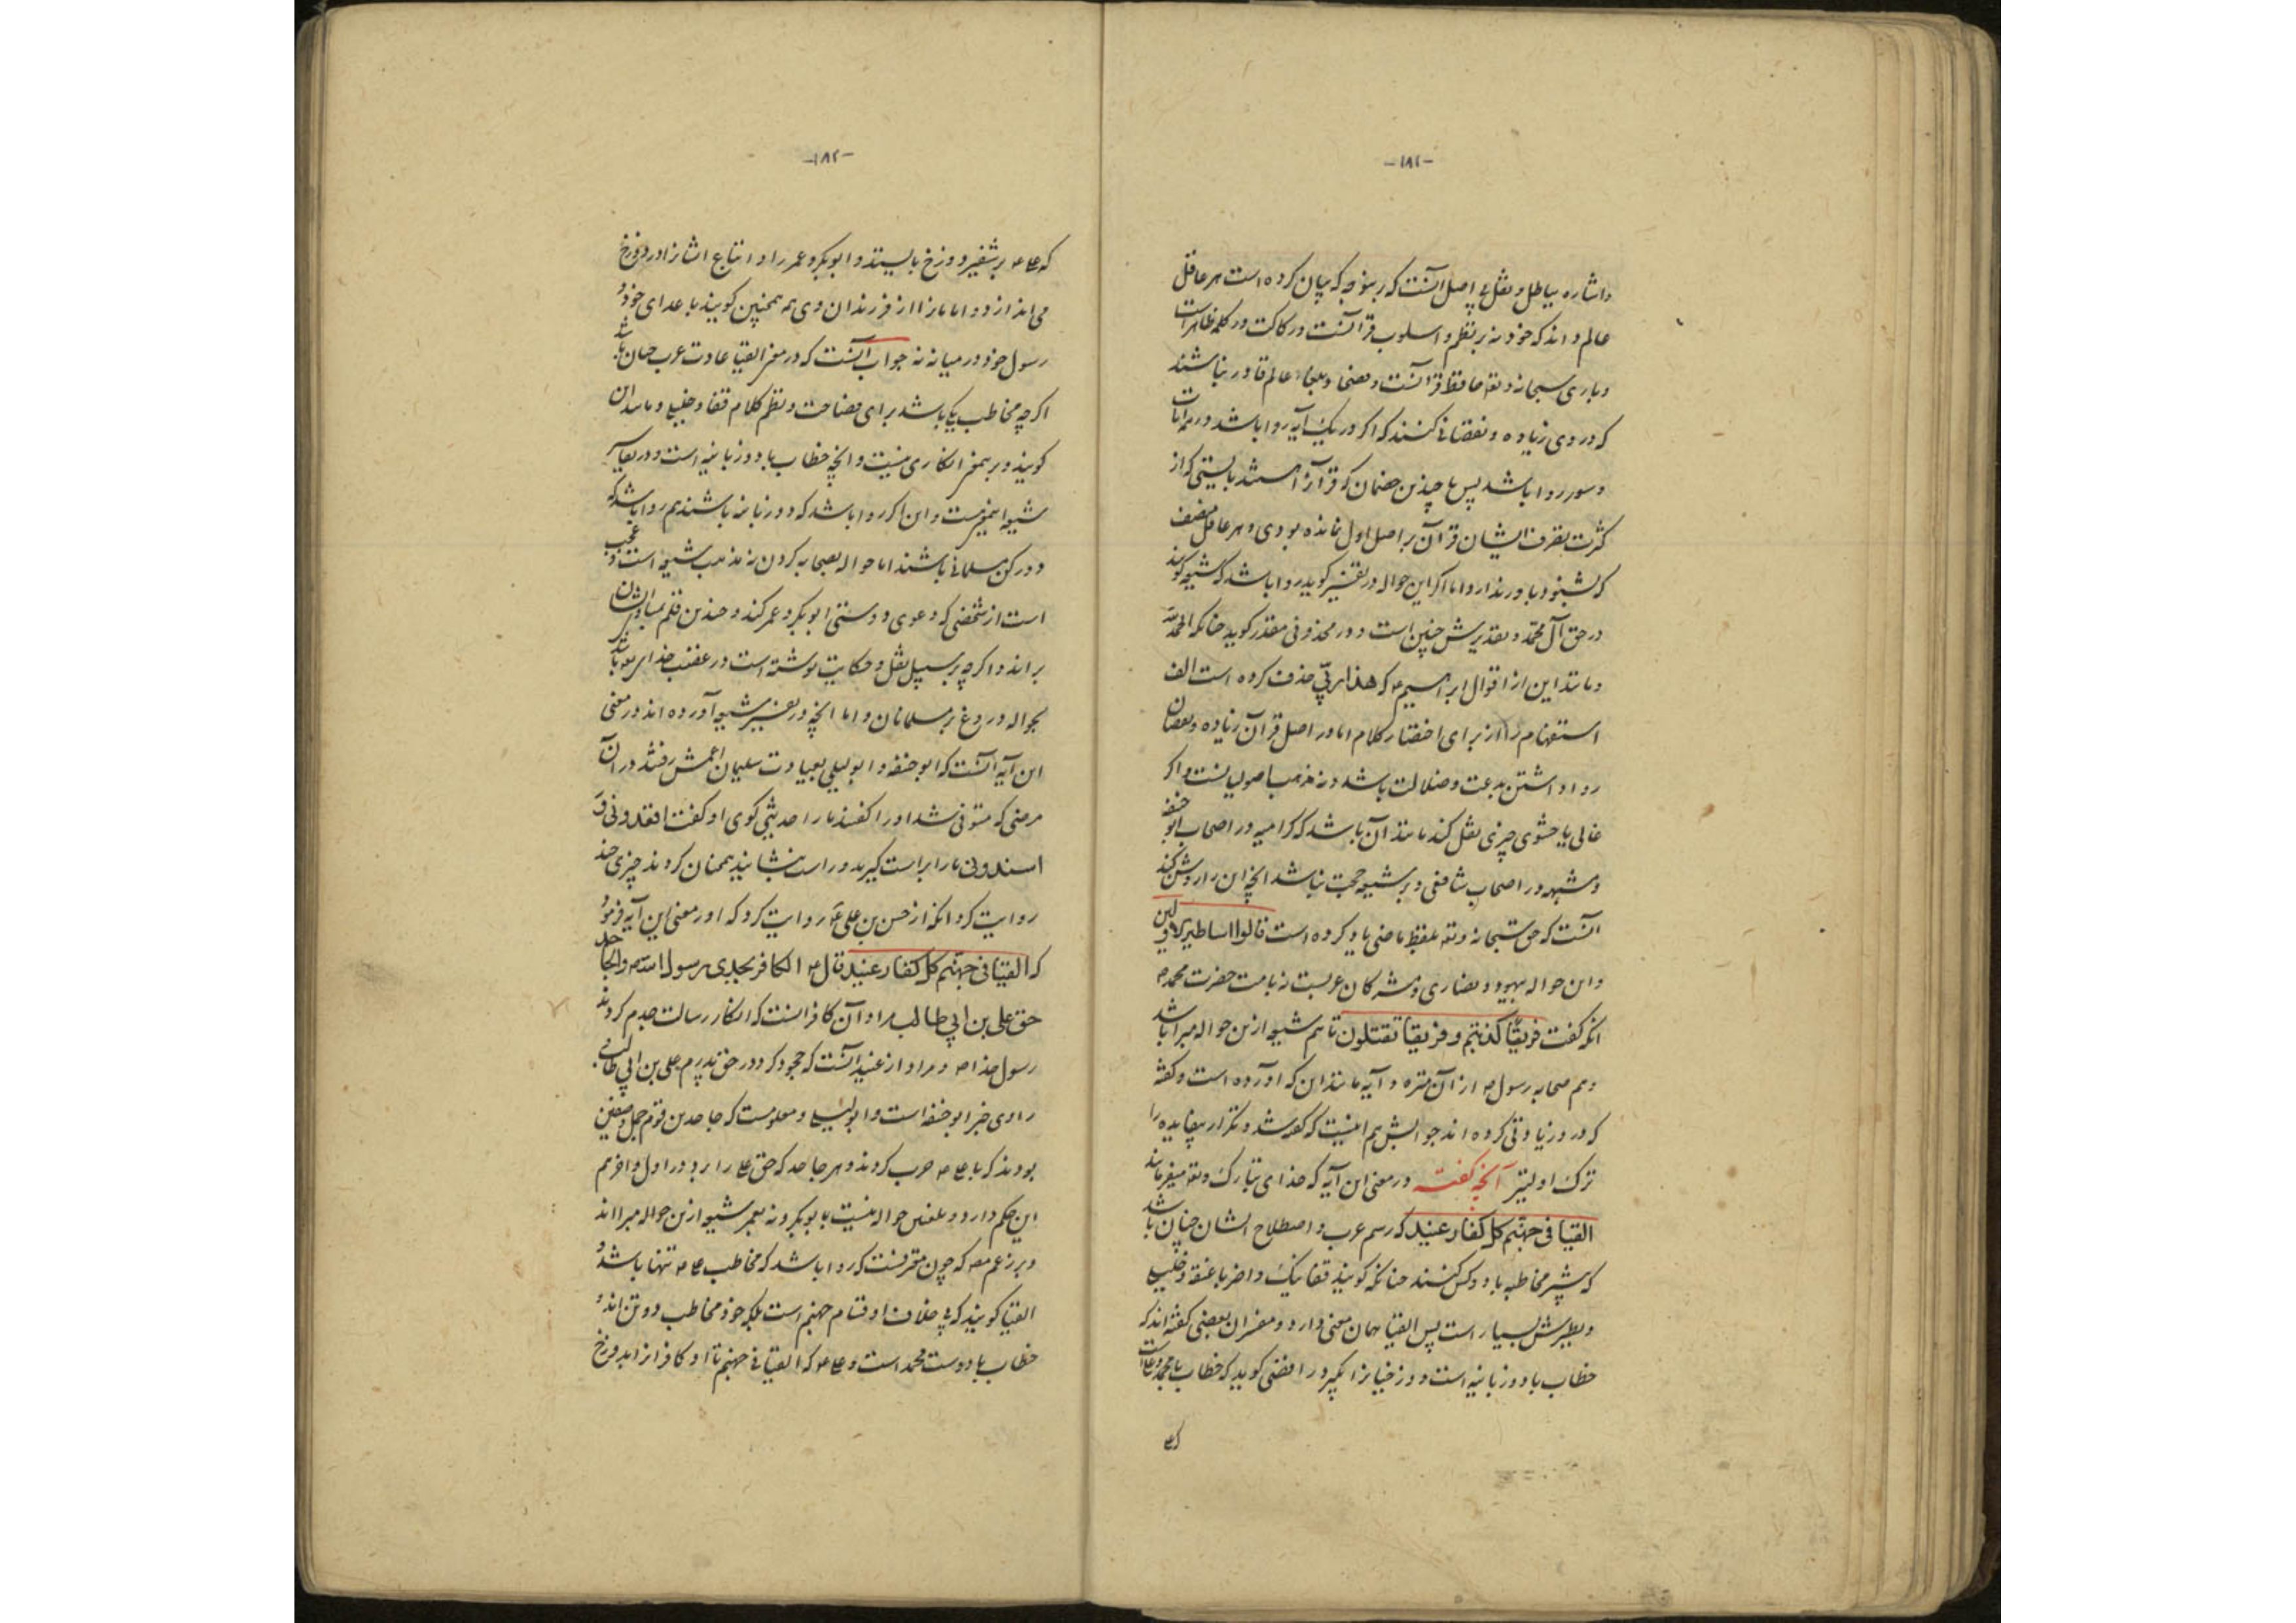 -۱۸۱-
و اشاره بباطل و نقل بی اصل آنست که برینوجه که بیان کرده است هر عاقل
عالم داند که خود نه بر نظم و اسلوب قرآنست و رکاکت در کلمه ظاهر است
و باری سبحانه و تعه حافظ قرآنست و فصحا و بلغاء عالم قادر نباشند
که در وی زیاده و نقصانی کنند که اگر در یک آیه روا باشد در همه آیات
و سور روا باشد پس با چندین خصمان که قرآن را هستند بایستی که از
کثرت تصرف ایشان قرآن بر اصل اول نمانده بودی و هر عاقل منصف
که بشنود باور ندارد اما اگر این حواله در تفسیر گوید روا باشد که شیعه گویند
در حق آل محمد و تقدیرش چنین است و در محذوفی مقدر گوید چنانکه الحمدلله
و مانند این از اقوال ابراهیم ع که هذا ربّی حذف کرده است الف
استفهام را از برای اختصار کلام اما در اصل قرآن زیاده و نقصان
روا داشتن بدعت و ضلالت باشد و نه مذهب اصولیانست و اگر
غالی یا حشوی چیزی نقل کند مانند آن باشد که کرامیه در اصحاب ابوحنفه
و مشبهه در اصحاب شافعی و بر شیعه حجت نباشد آنچه این را روشن کند
آنست که حق سبحانه و تعه بلفظ ماضی یاد کرده است قالوا اساطیر الاولین
و این حواله بیهود و نصاری و مشرکان عربست نه بامت حضرت محمد ص
آنکه گفت فریقًا کذبتم و فریقا تقتلون تا هم شیعه ازین حواله مبرا باشد
و هم صحابه رسول ص از آن منزه و آیه مانند این که آورده است و گفته
که درو زیادتی کرده اند جوابش هم اینست که گفته شد و تکرار بیفایده را
ترک اولیتر آنچه گفته در معنی این آیه که خدای تبارک و تعه میفرماید
القیا فی جهنّم کل کفار عنید که رسم عرب و اصطلاح ایشان چنان باشد
که بیشتر مخاطبه با دو کس کنند چنانکه گویند قفا نبک و اضربا عنقه و خلیلی
و نظیرش بسیار است پس القیا همان معنی دارد و مفسران بعضی گفته اند که
خطاب با دو زبانیه است و دوزخیان را بگیر و رافضی گوید که خطاب با محمد و علی است
که ع
-۱۸۲-
که علی ع بر شفیر دوزخ بایستد و ابوبکر و عمر را و اتباع ایشان را در دوزخ
می اندازد و امامان را از فرزندان وی همه همچنین گویند با عدای خود و
رسول خود در میانه نه جواب آنست که در معنی القیا عادت عرب چنان باشد
اگرچه مخاطب یکی باشد برای فصاحت و نظم کلام قفا و خلیلی و مانند آن
گویند و برینمعنی انکاری نیست و آنچه خطاب با دو زبانیه است و در تفاسیر
شیعه اینمعنی هست و این اگر روا باشد که دو زبانیه باشند هم روا باشد که
دو رکن مسلمانی باشند اما حواله بصحابه کردن نه مذهب شیعه است و عجب
است از شخصی که دعوی دوستی ابوبکر و عمر کند و چندین قلم بمساوی ایشان
براند و اگرچه بر سبیل نقل و حکایت نوشته است در عقب خدای تعه باشد
بحواله دروغ بر مسلمانان و اما آنچه در تفسیر شیعه آورده اند در معنی
این آیه آنست که ابوحنفه و ابولیلی بعیادت سلیمان اعمش رفتند در آن
مرضی که متوفی شد او را گفتند ما را حدیثی گوی او گفت اقعدونی و
اسندونی ما را براست گیرید و راست بنشانید همچنان کردند چیزی چند
روایت کرد آنکه از حسن بن علی ع روایت کرد که او در معنی این آیه فرمود
که القیا فی جهنّم کل کفار عنید قال ص الکافر بجدی رسول الله ص و الجاحد
حق علی بن ابی طالب مراد آن کافرانست که انکار رسالت جدم کردند
رسول خدا ص و مراد از عنید آنست که جحود کرد در حق پدرم علی بن ابی طالب
راوی خبر ابوحنفه است و ابولیلی و معلومست که جاحدین قوم جمل و صفین
بودند که با علی ع حرب کردند و هر جاحد که حق علی را برد در اول و آخر هم
این حکم دارد و بنفس حواله نیست بابوبکر و نه بعمر شیعه ازین حواله مبرا اند
و بر زعم مصـ که چون مقرنست که روا باشد که مخاطب علی ع تنها باشد و
القیا گویند که بی خلاف او قسام جهنم است بلکه خود مخاطب دو تن اند و
خطاب با دوست محمد است و علی ع که القیا فی جهنم تا او کافران را بدوزخ